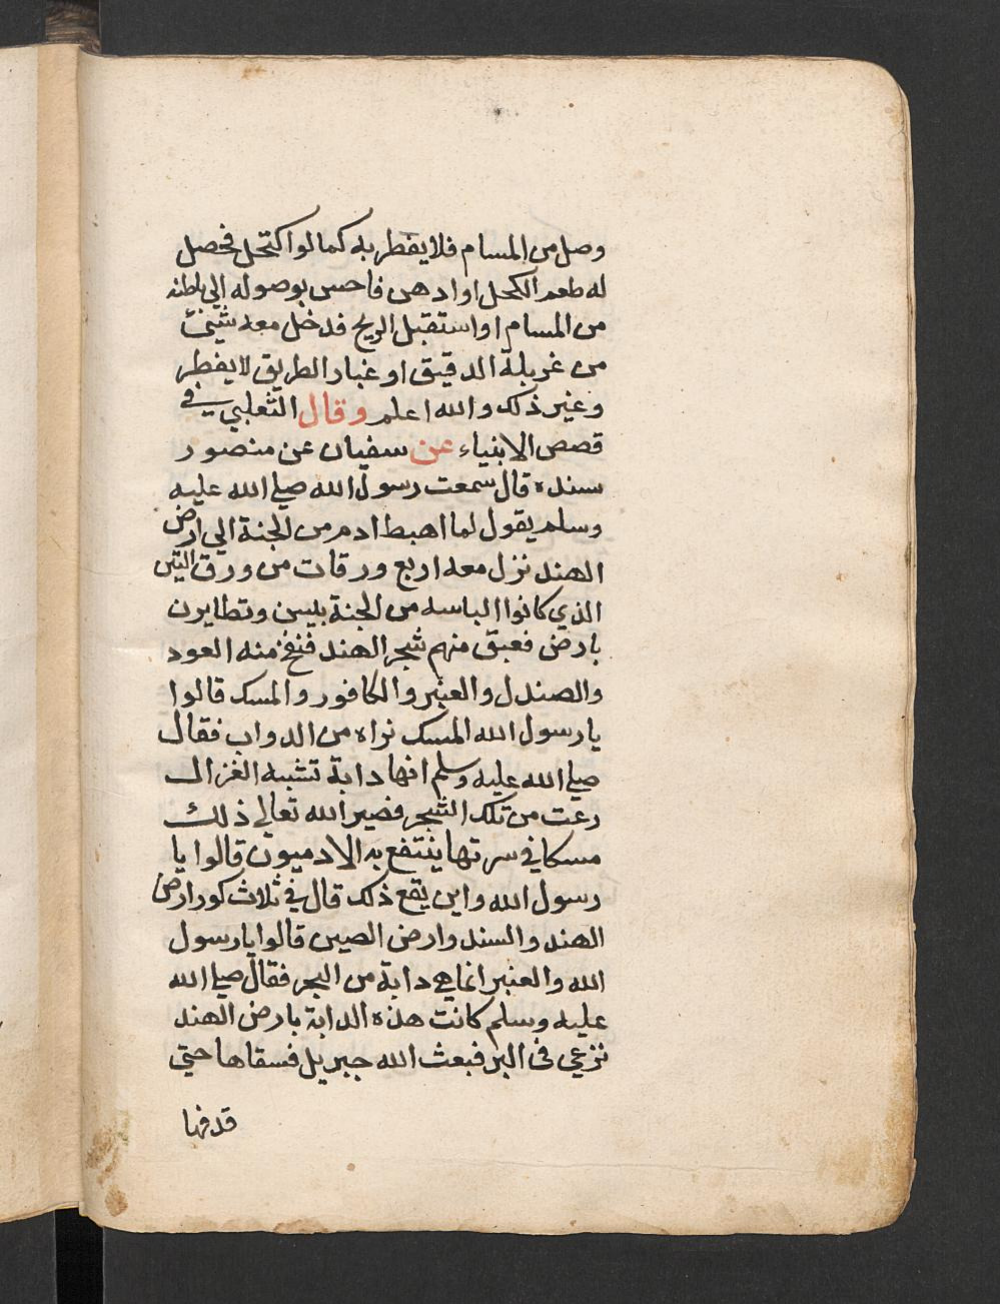 وصل من المسام فلا يفطر به كما لو اكتحل فحصل
له طعم الكحل او ادهن فاحس بوصوله الي باطنه
من المسام او استقبل الريح فدخل معه شيئ
من غربلة الدقيق او غبار الطريق لا يفطر
وغير ذلك والله اعلم وقال الثعلبي في
قصص الانبياء عن سفيان عن منصور
سنده قال سمعت رسول الله صلي الله عليه
وسلم يقول لما اهبط ادم من الجنة الي ارض
الهند نزل معه اربع ورقات من ورق التين
الذي كانوا الباسه من الجنة يبسن وتطايرن
بارض فعبق منهم شجر الهند فنفخ منه العود
والصندل والعنبر والكافور والمسك قالوا
يا رسول الله المسك نراه من الدواب فقال
صلي الله عليه وسلم انها دابة تشبه الغزال
رعت من تلك الشجر فصير الله تعالي ذلك
مسكا في سرتها ينتفع به الادميون قالوا يا
رسول الله واين يقع ذلك قال في ثلاث كور ارض
الهند والسند وارض الصين قالوا يا رسول
الله والعنبر انما هي دابة من البحر فقال صلي الله
عليه وسلم كانت هذه الدابة بارض الهند
ترعي في البر فبعث الله جبريل فسقاها حتي
قدفها